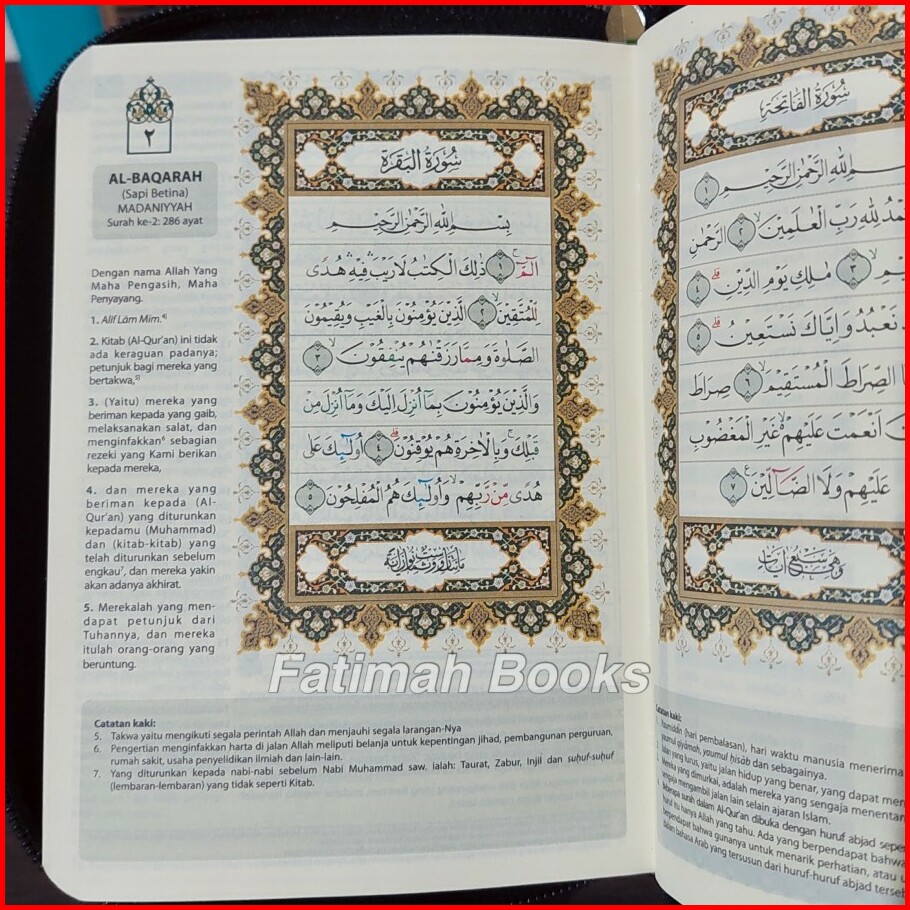 ٢
AL-BAQARAH
(Sapi Betina)
MADANIYYAH
Surah ke-2: 286 ayat
Dengan nama Allah Yang
Maha Pengasih, Maha
Penyayang.
1. Alif Lām Mīm.4)
2. Kitab (Al-Qur'an) ini tidak
ada keraguan padanya;
petunjuk bagi mereka yang
bertakwa,5)
3. (Yaitu) mereka yang
beriman kepada yang gaib,
melaksanakan salat, dan
menginfakkan6 sebagian
rezeki yang Kami berikan
kepada mereka,
4. dan mereka yang
beriman kepada (Al-
Qur'an) yang diturunkan
kepadamu (Muhammad)
dan (kitab-kitab) yang
telah diturunkan sebelum
engkau7, dan mereka yakin
akan adanya akhirat.
5. Merekalah yang men-
dapat petunjuk dari
Tuhannya, dan mereka
itulah orang-orang yang
beruntung.
سُوْرَةُ الْبَقَرَةِ
بِسْمِ اللّٰهِ الرَّحْمٰنِ الرَّحِيْمِ
الۤمّۤ ۚ ١ ذٰلِكَ الْكِتٰبُ لَا رَيْبَ ۛ فِيْهِ ۛ هُدًى
لِّلْمُتَّقِيْنَۙ ٢ الَّذِيْنَ يُؤْمِنُوْنَ بِالْغَيْبِ وَيُقِيْمُوْنَ
الصَّلٰوةَ وَمِمَّا رَزَقْنٰهُمْ يُنْفِقُوْنَۙ ٣
وَالَّذِيْنَ يُؤْمِنُوْنَ بِمَآ اُنْزِلَ اِلَيْكَ وَمَآ اُنْزِلَ مِنْ
قَبْلِكَ ۚ وَبِالْاٰخِرَةِ هُمْ يُوْقِنُوْنَۗ ٤ اُولٰۤىِٕكَ عَلٰى
هُدًى مِّنْ رَّبِّهِمْ ۙ وَاُولٰۤىِٕكَ هُمُ الْمُفْلِحُوْنَ ٥
Catatan kaki:
5. Takwa yaitu mengikuti segala perintah Allah dan menjauhi segala larangan-Nya
6. Pengertian menginfakkan harta di jalan Allah meliputi belanja untuk kepentingan jihad, pembangunan perguruan,
rumah sakit, usaha penyelidikan ilmiah dan lain-lain.
7. Yang diturunkan kepada nabi-nabi sebelum Nabi Muhammad saw. ialah: Taurat, Zabur, Injil dan ṣuḥuf-ṣuḥuf
(lembaran-lembaran) yang tidak seperti Kitab.
Fatimah Books
سُوْرَةُ الْفَاتِحَةِ
اللّٰهِ الرَّحْمٰنِ الرَّحِيْمِ ١
لِلّٰهِ رَبِّ الْعٰلَمِيْنَۙ ٢ الرَّحْمٰنِ
٣ مٰلِكِ يَوْمِ الدِّيْنِۗ ٤
نَعْبُدُ وَاِيَّاكَ نَسْتَعِيْنُۗ ٥
الصِّرَاطَ الْمُسْتَقِيْمَۙ ٦ صِرَاطَ
اَنْعَمْتَ عَلَيْهِمْ ەۙ غَيْرِ الْمَغْضُوْبِ
عَلَيْهِمْ وَلَا الضَّاۤلِّيْنَ ٧
Catatan kaki:
(hari pembalasan), hari waktu manusia menerima
yaumul qiyāmah, yaumul ḥisāb dan sebagainya.
Jalan yang lurus, yaitu jalan hidup yang benar, yang dapat
Mereka yang dimurkai, adalah mereka yang sengaja
mengambil jalan lain selain ajaran Islam.
Beberapa surah dalam Al-Qur'an dibuka dengan huruf abjad
huruf itu hanya Allah yang tahu. Ada yang berpendapat
berpendapat bahwa gunanya untuk menarik perhatian, atau
dalam bahasa Arab yang tersusun dari huruf-huruf abjad